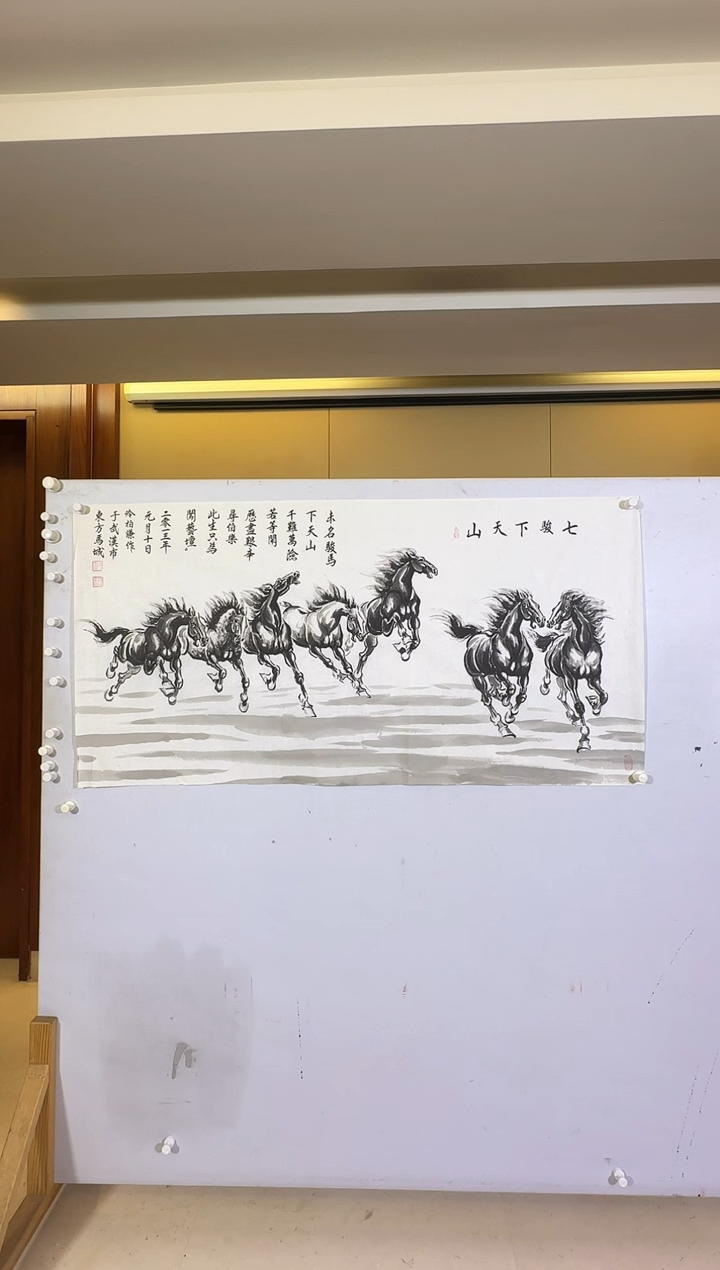 七駿下天山
未名駿馬
下天山
千難萬險
若等閑
歷盡艱辛
尋伯樂
此生只為
閙藝壇
二零一三年
元月十日
柏謙作
于武漢市
東方馬城